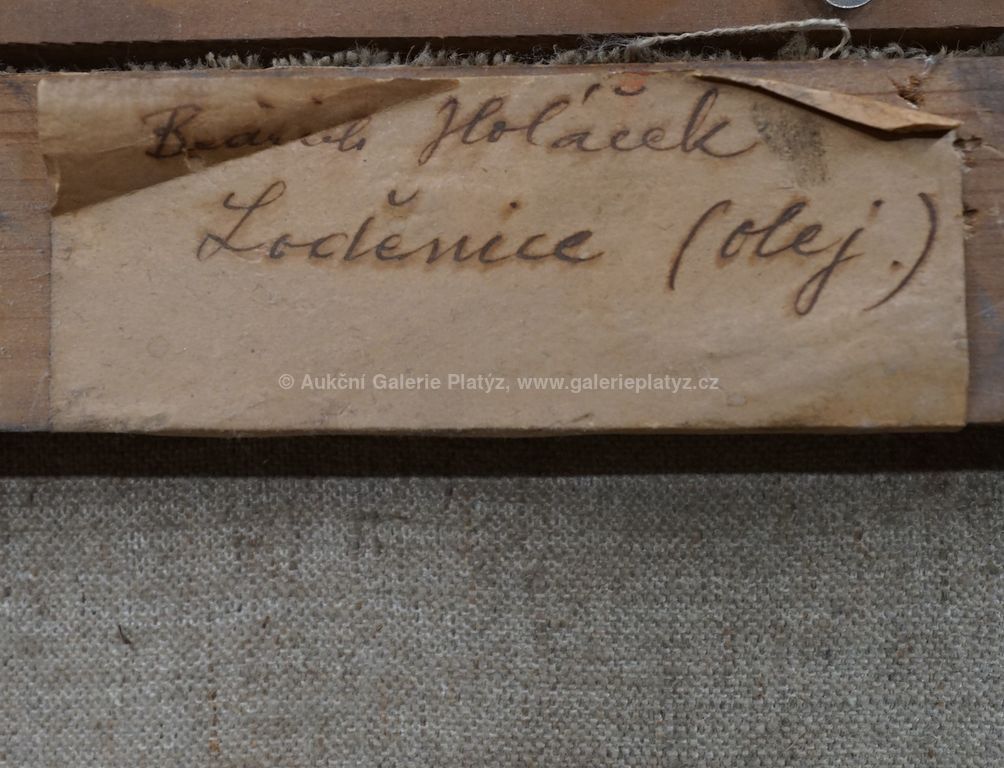 Bedřich Holáček
Loděnice (olej.)
© Aukční Galerie Platýz, www.galerieplatyz.cz